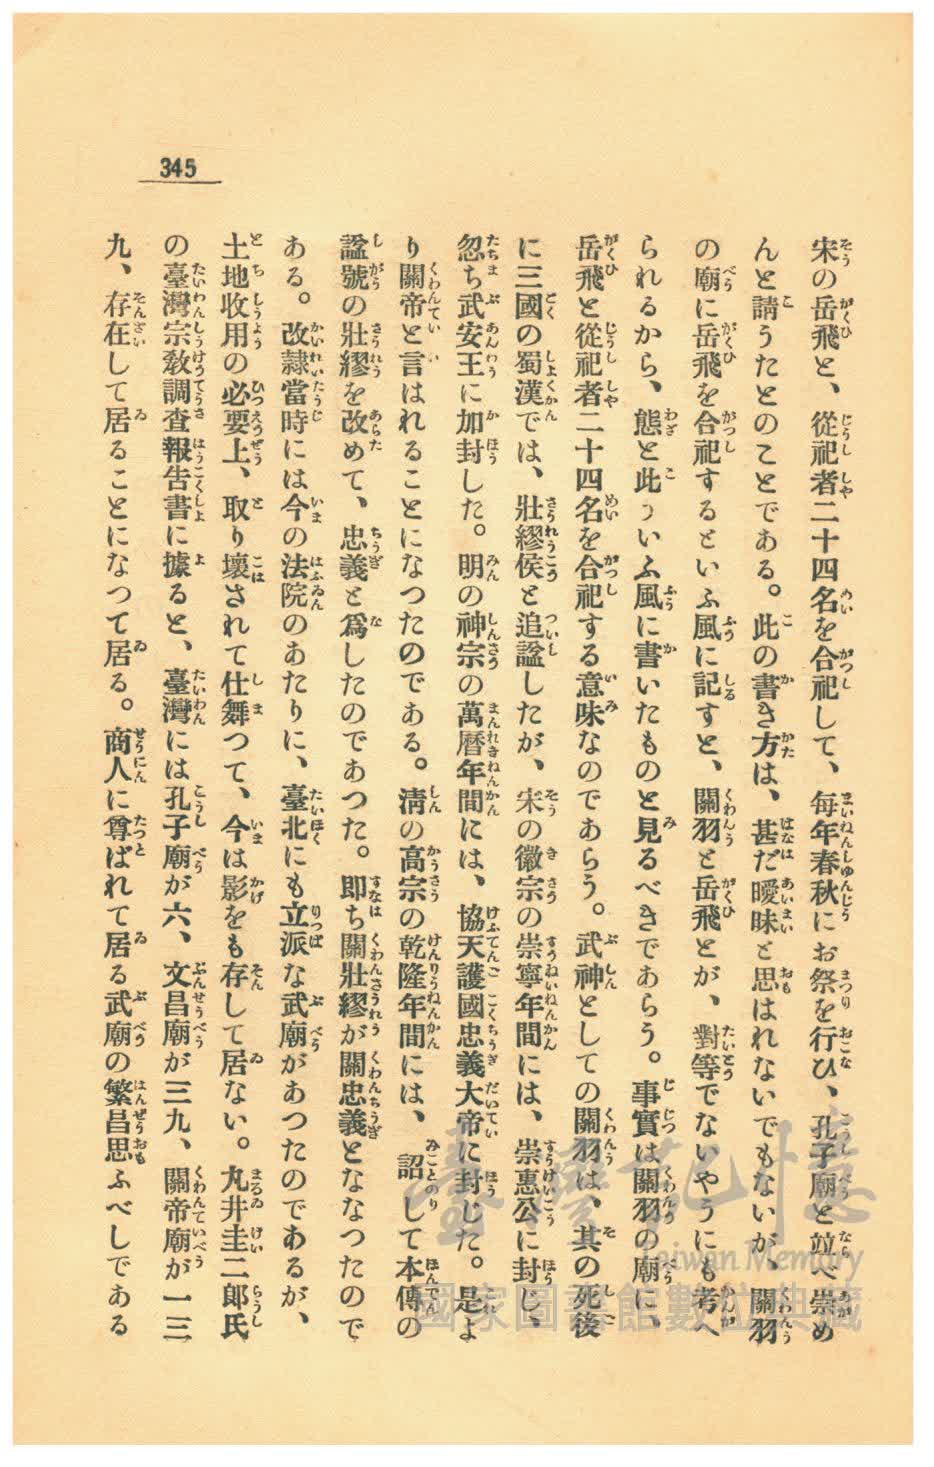 345
宋の岳飛と、從祀者二十四名を合祀して、每年春秋にお祭を行ひ、孔子廟と竝べ崇め
んと請うたとのことである。此の書き方は、甚だ曖昧と思はれないでもないが、關羽
の廟に岳飛を合祀するといふ風に記すと、關羽と岳飛とが、對等でないやうにも考へ
られるから、態と此ういふ風に書いたものと見るべきであらう。事實は關羽の廟に、
岳飛と從祀者二十四名を合祀する意味なのであらう。武神としての關羽は、其の死後
に三國の蜀漢では、壯繆侯と追諡したが、宋の徽宗の崇寧年間には、崇惠公に封じ、
忽ち武安王に加封した。明の神宗の萬曆年間には、協天護國忠義大帝に封じた。是よ
り關帝と言はれることになつたのである。淸の高宗の乾隆年間には、詔して本傳の
諡號の壯繆を改めて、忠義と爲したのであつた。卽ち關壯繆が關忠義とななつたので
ある。改隸當時には今の法院のあたりに、臺北にも立派な武廟があつたのであるが、
土地收用の必要上、取り壞されて仕舞つて、今は影をも存して居ない。丸井圭二郎氏
の臺灣宗敎調查報告書に據ると、臺灣には孔子廟が六、文昌廟が三九、關帝廟が一三
九、存在して居ることになつて居る。商人に尊ばれて居る武廟の繁昌思ふべしである
臺灣記憶
Taiwan Memory
國家圖書館數位典藏